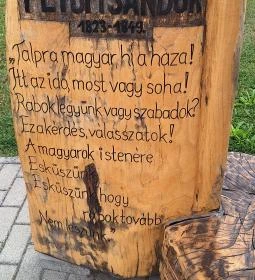 PETŐFI SÁNDOR
1823-1849.
„Talpra magyar, hí a haza!
Itt az idő, most vagy soha!
Rabok legyünk, vagy szabadok?
Ez a kérdés, válasszatok!
A magyarok istenére
Esküszünk,
Esküszünk, hogy
rabok tovább
Nem leszünk."